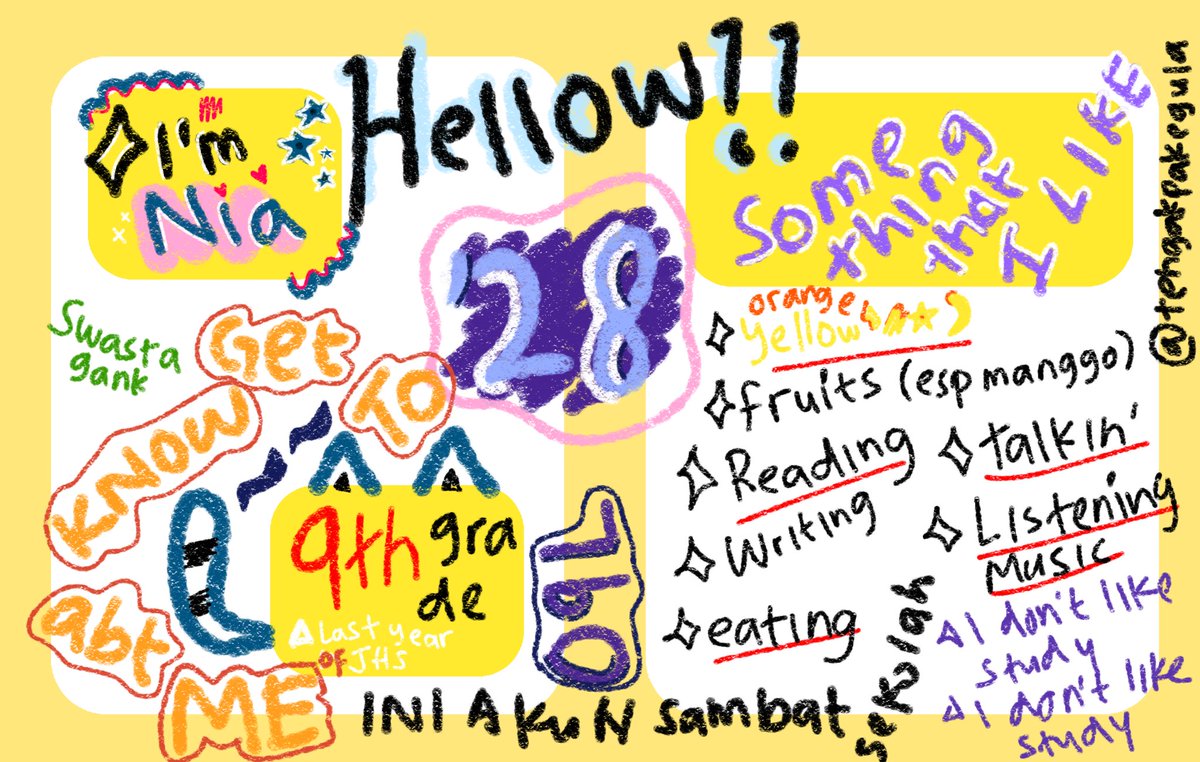 Hellow!!
I'm
Nia
'28
Swasta
gank
Get
To
KNOW
abt
ME
9th gra
de
Last year
of JHS
09L
INI AKUN sambat
sekolah
Some
thing
that
I LIKE
orange
Yellow
fruits (esp manggo)
Reading
Writing
eating
talkin'
Listening
Music
I don't like
study
I don't like
study
@tehgakpakegula